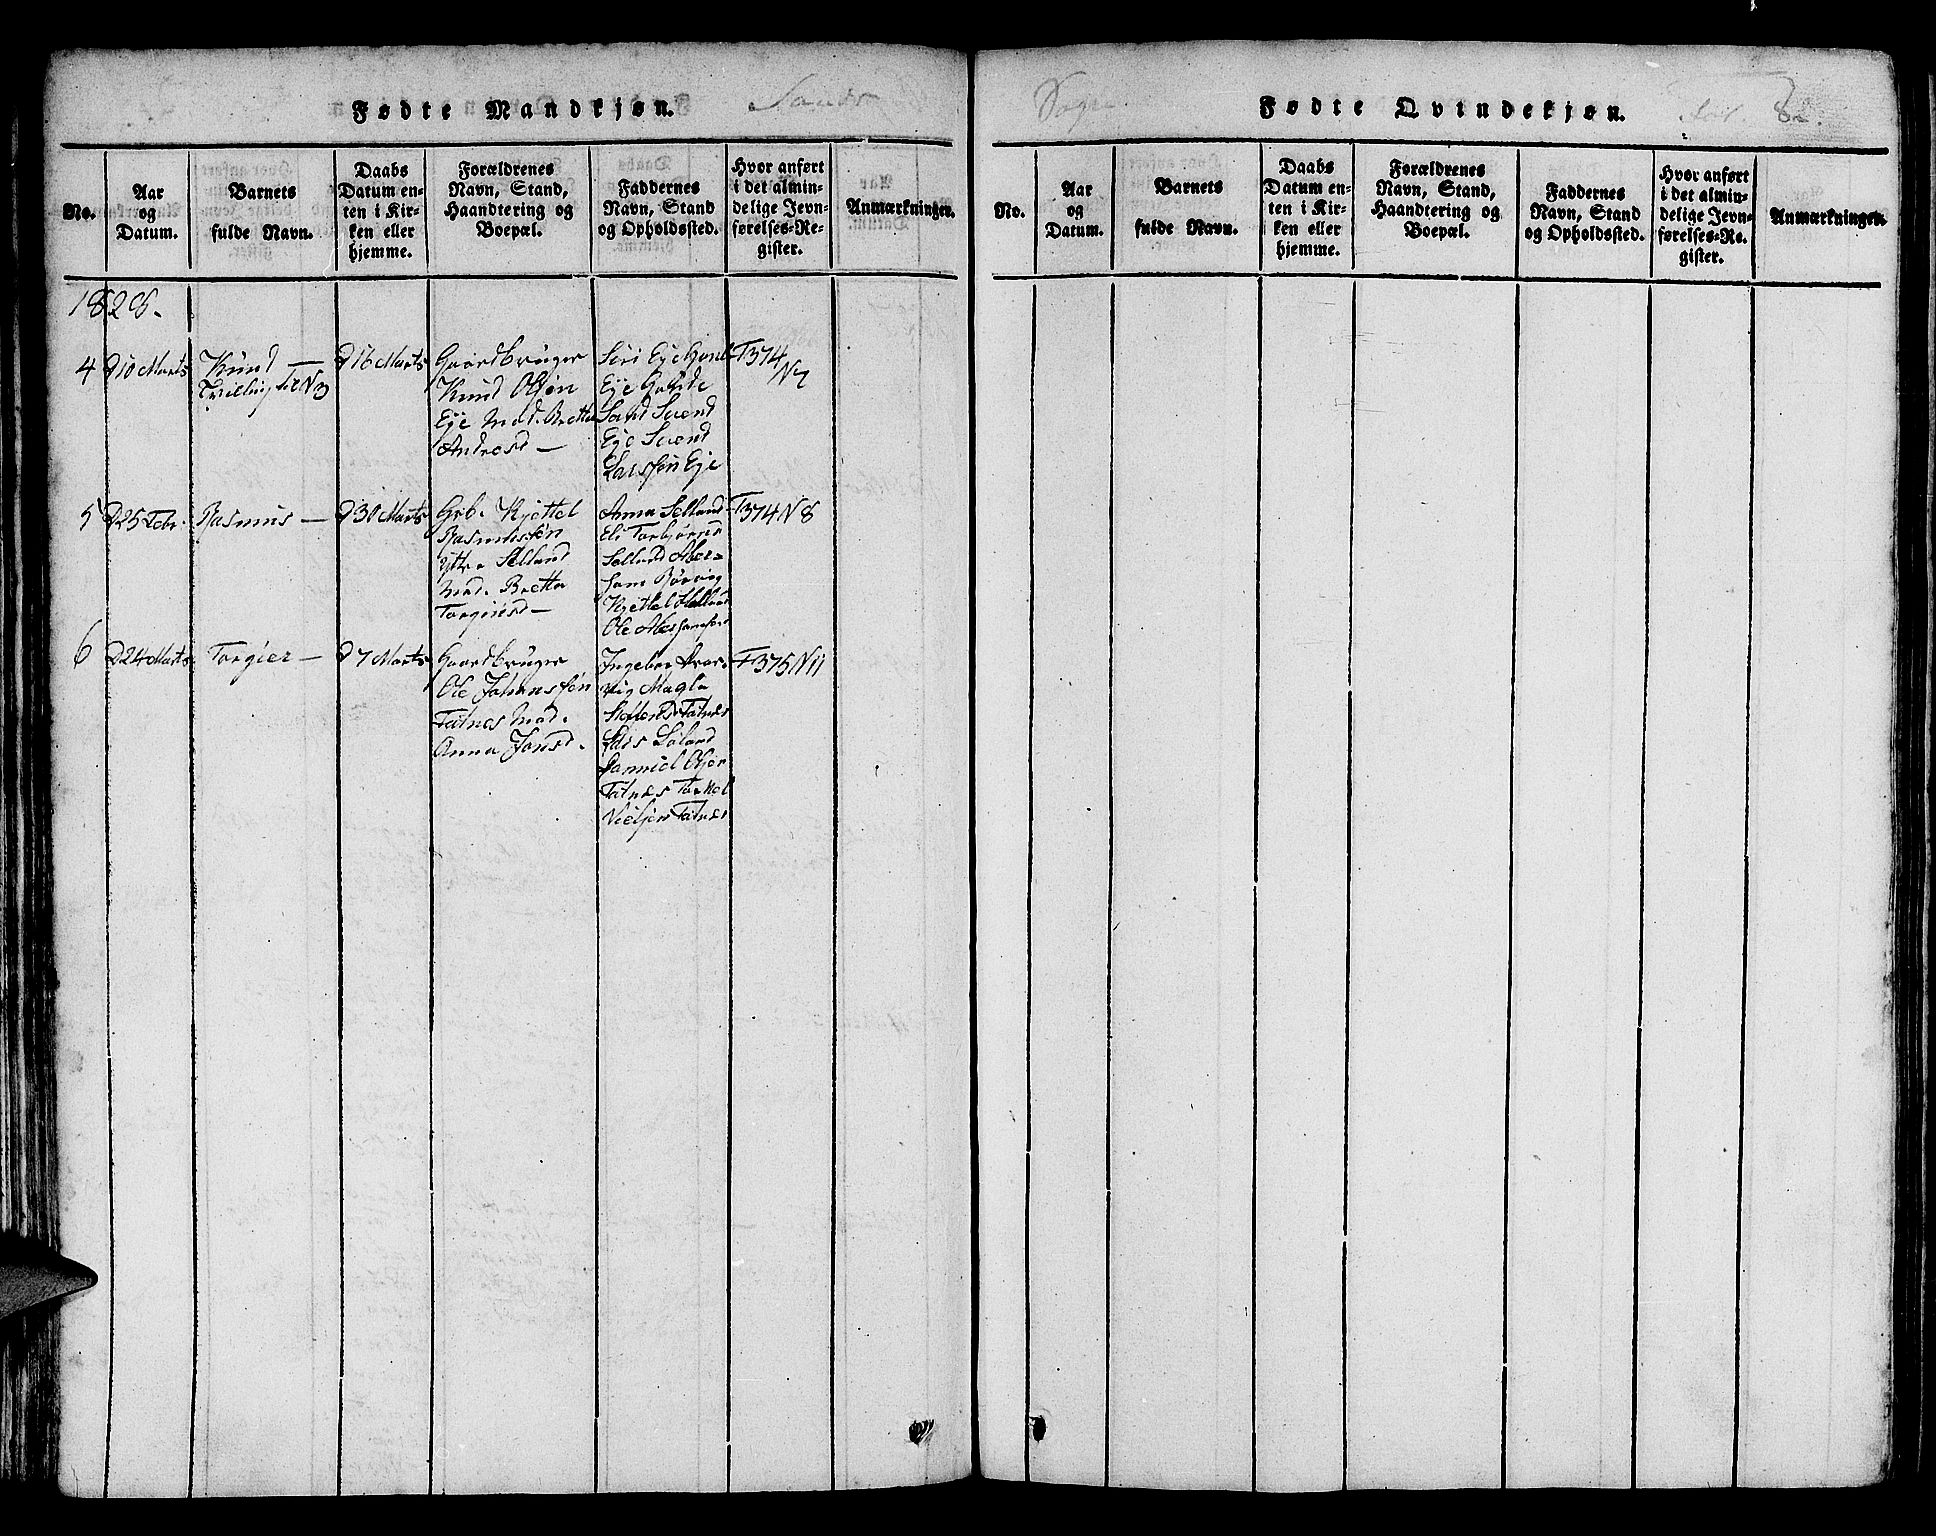 Fødte Mandkjøn. Sands
No.
Aar
og
Datum.
Barnets
fulde Navn.
Daabs
Datum en-
ten i Kir-
ken eller
hjemme.
Forældrenes
Navn, Stand,
Haandtering og
Boepæl.
Faddernes
Navn, Stand
og Opholdssted.
Hvor anført
i det almin-
delige Jevn-
førelses-Re-
gister.
Anmærkninger.
1828.
4
D 10 Marts
Knud —
Tvilling til N 3
D 16 Marts
Gaardbruger
Knud Olsøn
Eje Mod. Bretta
Andrasd —
Siri Eje
Eje
Sand Svend
Eje Svend
Larssøn Eje
F 374
N 7
5
D 25 Febr.
Rasmus —
D 30 Marts
Grb. Kjettel
Rasmussøn
yttre Selland
Mod. Bretta
Torgirsd —
Anna Selland
Eli Torbjørnsd
Selland Aber-
ham
Kjettel Helland
Ole Abershamsen
F 374 N 8
6
D 24 Marts
Torgier —
D 7 Marts
Gaardbruger
Ole Johanssøn
Tatnes Mod.
Anna Jonsd.
Ingebor Drar-
vig Magla
Steffensd Tatnes
Lars Løland
Danniel Olsøn
Tatnes Torkel
Nieljen Tatnes
F 375 N 11
Sogn Fødte Qvindekjøn. 82.
No.
Aar
og
Datum.
Barnets
fulde Navn.
Daabs
Datum en-
ten i Kir-
ken eller
hjemme.
Forældrenes
Navn, Stand,
Haandtering og
Boepæl.
Faddernes
Navn, Stand
og Opholdssted.
Hvor anført
i det almin-
delige Jevn-
førelses-Re-
gister.
Anmærkninger.